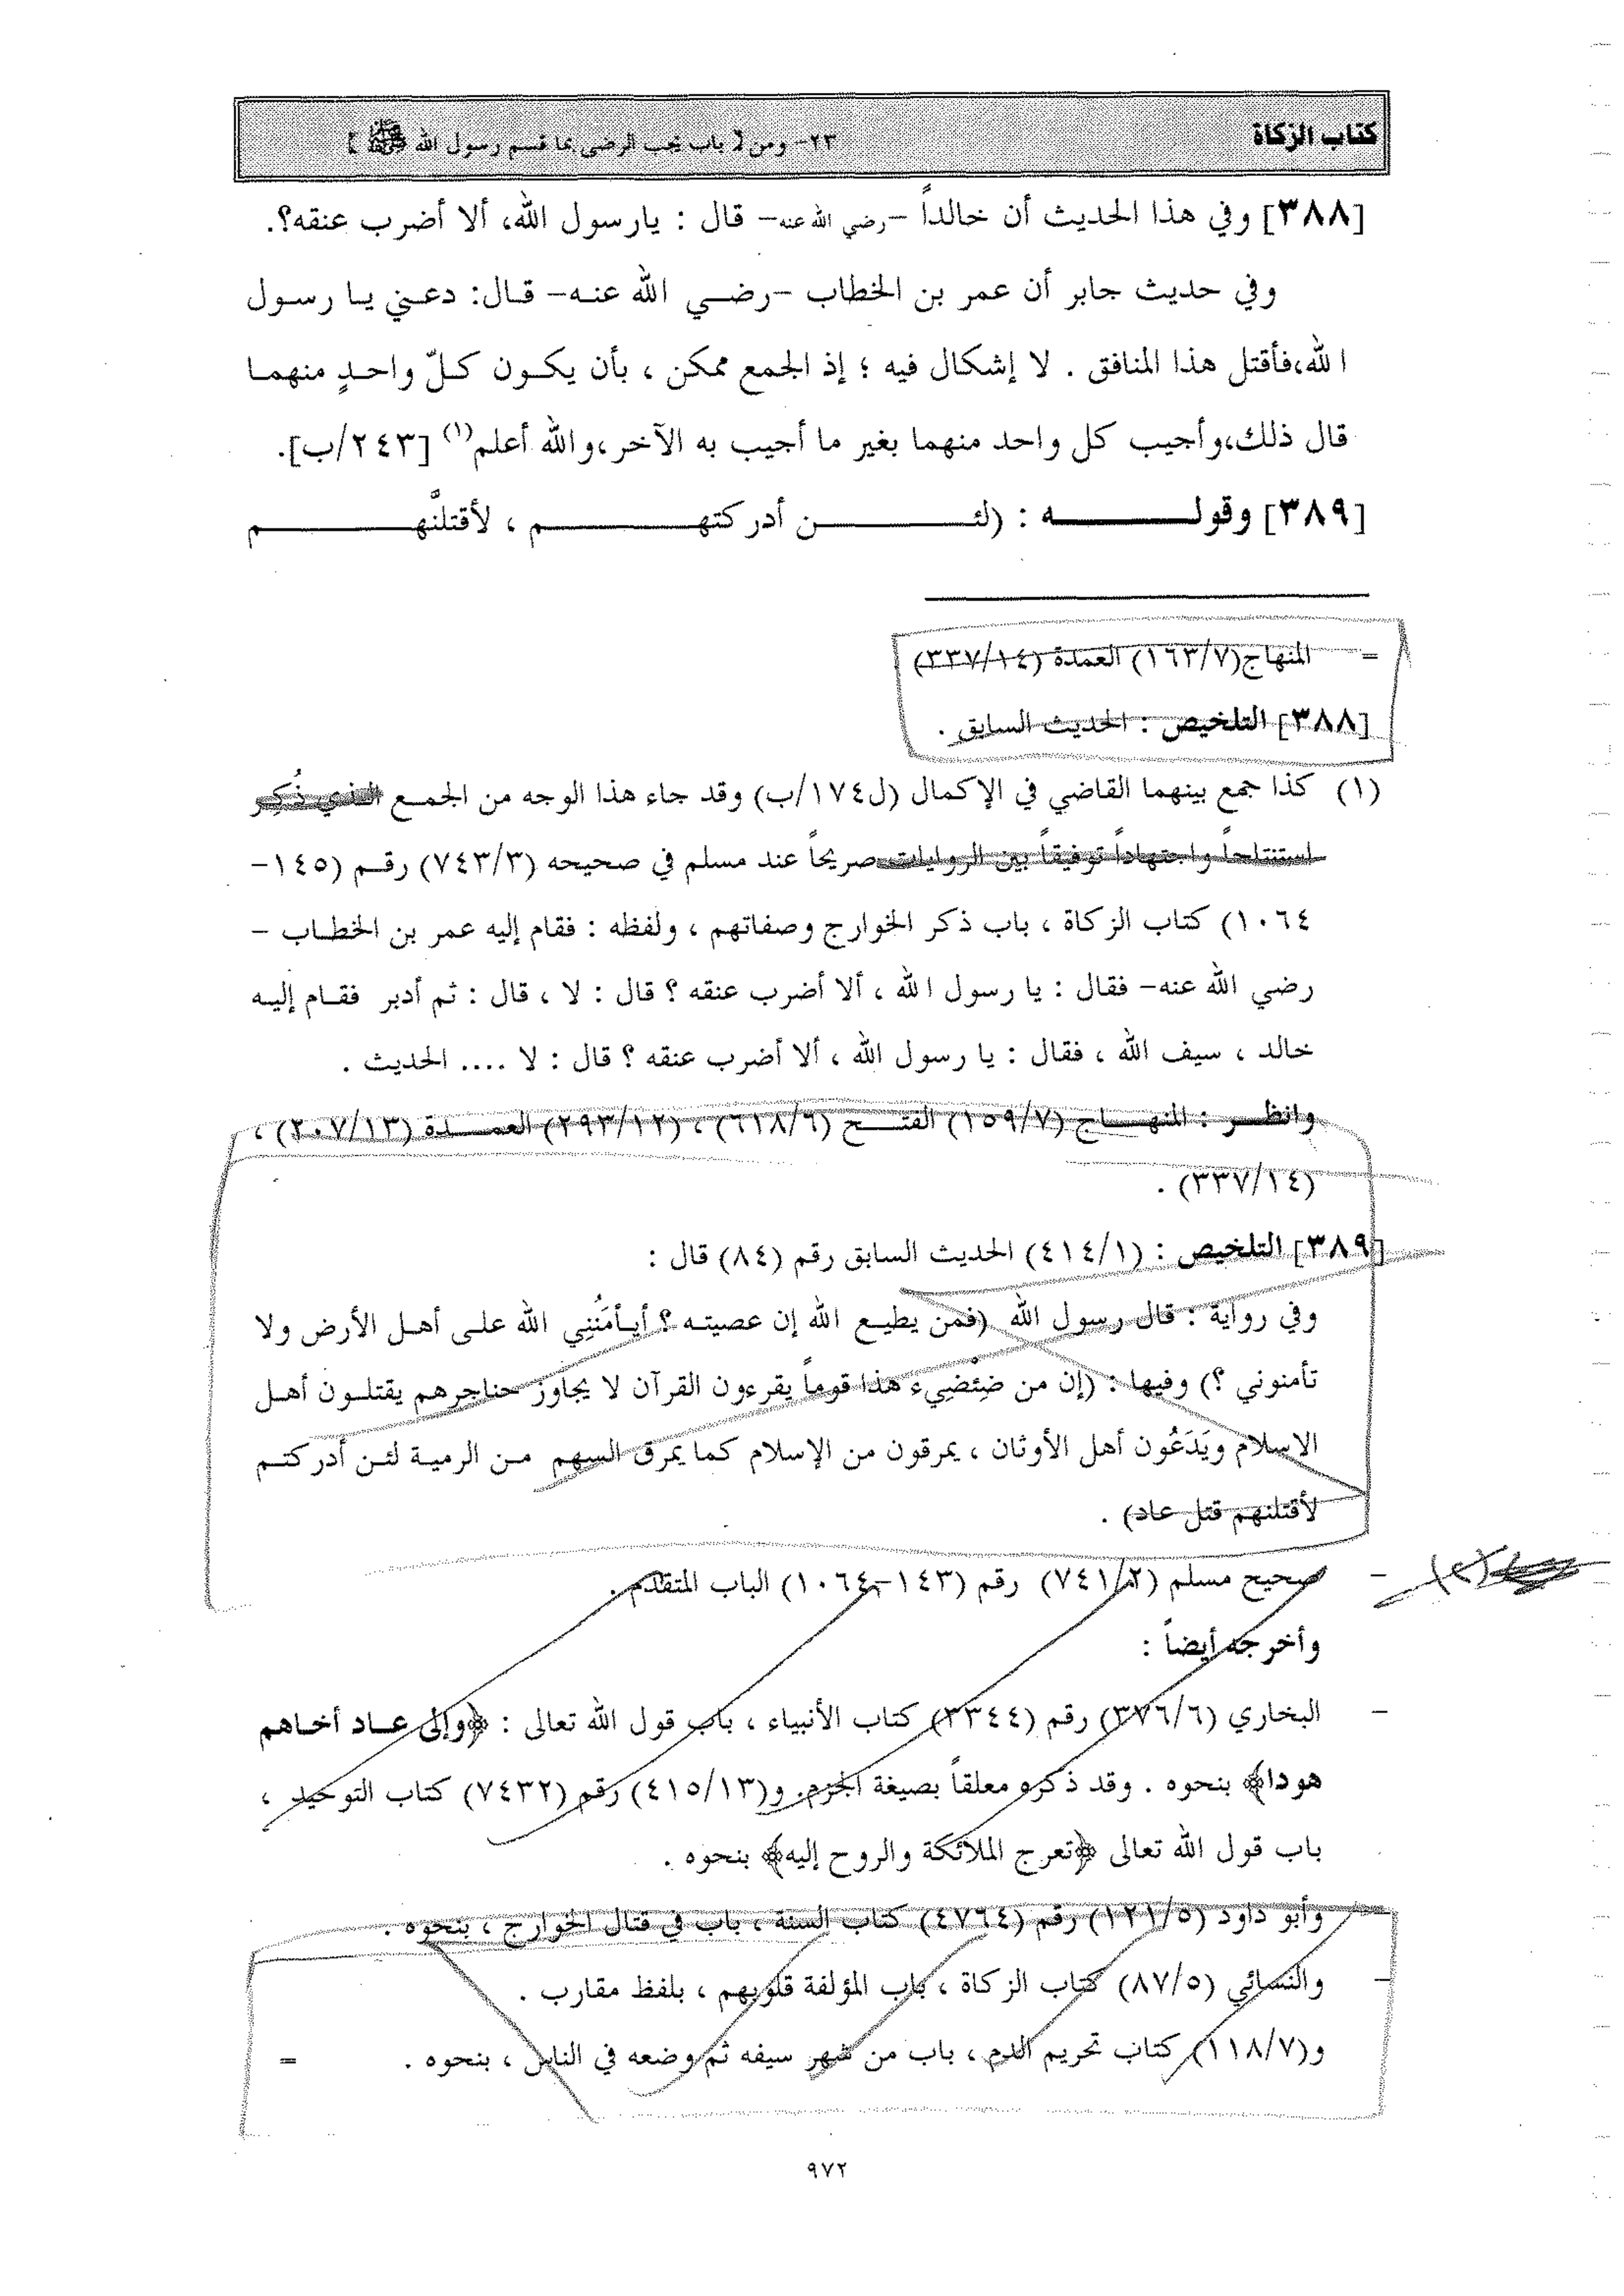 كتاب الزكاة
٢٣- ومن [ باب يجب الرضى بما قسم رسول الله ﷺ ]
[٣٨٨] وفي هذا الحديث أن خالداً -رضي الله عنه- قال : يارسول الله، ألا أضرب عنقه؟.
وفي حديث جابر أن عمر بن الخطاب -رضي الله عنه- قال: دعني يا رسول
الله،فأقتل هذا المنافق . لا إشكال فيه ؛ إذ الجمع ممكن ، بأن يكون كلّ واحدٍ منهما
قال ذلك،وأجيب كل واحد منهما بغير ما أجيب به الآخر،والله أعلم(١) [٢٤٣/ب].
[٣٨٩] وقوله : (لئن أدركتهم ، لأقتلنَّهم
= المنهاج(١٦٣/٧) العمدة (٣٣٧/١٤)
[٣٨٨] التلخيص : الحديث السابق .
(١) كذا جمع بينهما القاضي في الإكمال (ل١٧٤/ب) وقد جاء هذا الوجه من الجمع الذي ذُكِر
استنتاجاً واجتهاداً توفيقاً بين الروايات صريحاً عند مسلم في صحيحه (٧٤٣/٣) رقم (١٤٥-
١٠٦٤) كتاب الزكاة ، باب ذكر الخوارج وصفاتهم ، ولفظه : فقام إليه عمر بن الخطاب -
رضي الله عنه- فقال : يا رسول الله ، ألا أضرب عنقه ؟ قال : لا ، قال : ثم أدبر فقام إليه
خالد ، سيف الله ، فقال : يا رسول الله ، ألا أضرب عنقه ؟ قال : لا .... الحديث .
وانظر : المنهاج (١٥٩/٧) الفتح (٦١٨/٦) ، (٢٩٣/١٢) العمدة (٢٠٧/١٣) ،
(٣٣٧/١٤) .
[٣٨٩] التلخيص : (٤١٤/١) الحديث السابق رقم (٨٤) قال :
وفي رواية : قال رسول الله (فمن يطيع الله إن عصيته ؟ أيأمَنُنِي الله على أهل الأرض ولا
تأمنوني ؟) وفيها : (إن من ضِئْضِيء هذا قوماً يقرءون القرآن لا يجاوز حناجرهم يقتلون أهل
الإسلام ويَدَعُون أهل الأوثان ، يمرقون من الإسلام كما يمرق السهم من الرمية لئن أدركتم
لأقتلنهم قتل عاد) .
(٢) - صحيح مسلم (٧٤١/٢) رقم (١٤٣-١٠٦٤) الباب المتقدم .
وأخرجه أيضاً :
- البخاري (٣٧٦/٦) رقم (٣٣٤٤) كتاب الأنبياء ، باب قول الله تعالى : ﴿وإلى عاد أخاهم
هودا﴾ بنحوه . وقد ذكره معلقاً بصيغة الجزم. و(٤١٥/١٣) رقم (٧٤٣٢) كتاب التوحيد ،
باب قول الله تعالى ﴿تعرج الملائكة والروح إليه﴾ بنحوه .
- وأبو داود (١٢١/٥) رقم (٤٧٦٤) كتاب السنة ، باب في قتال الخوارج ، بنحوه .
- والنسائي (٨٧/٥) كتاب الزكاة ، باب المؤلفة قلوبهم ، بلفظ مقارب .
و(١١٨/٧) كتاب تحريم الدم ، باب من شهر سيفه ثم وضعه في الناس ، بنحوه . =
٩٧٢